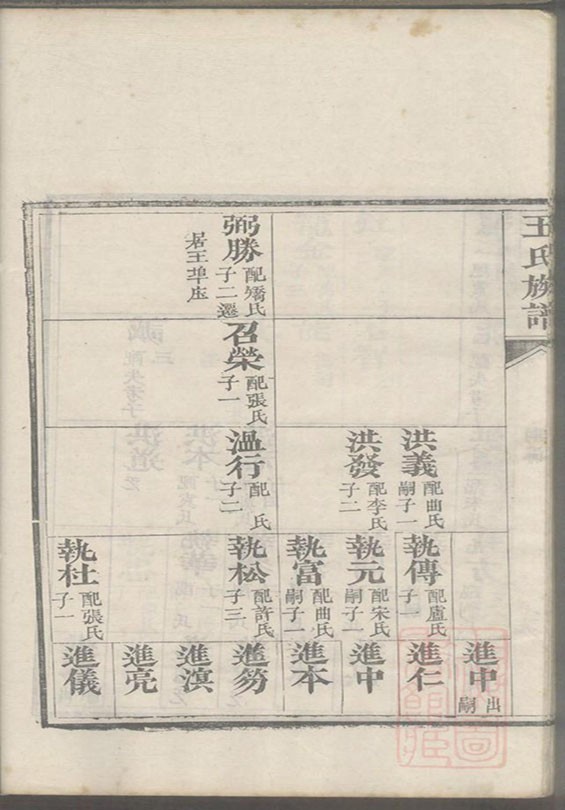 王氏族譜
弼勝 配矯氏 子二遷
居王埠庄
召榮 配張氏 子一
洪義 配曲氏 嗣子一
洪發 配李氏 子二
溫行 配 氏 子二
執傳 配盧氏 子一
執元 配宋氏 嗣子一
執富 配曲氏 嗣子一
執松 配許氏 子三
執杜 配張氏 子一
進中 出嗣
進仁
進中
進本
進笏
進滇
進亮
進儀